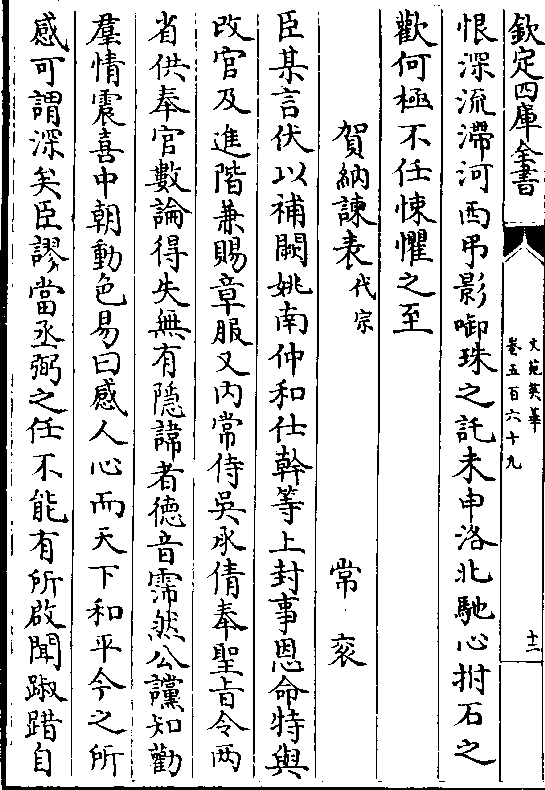 欽定四庫全書
文苑英華
卷五百六十九
十三
恨深流滯河西弔影啣珠之託未申洛北馳心拊石之
歡何極不任悚懼之至
賀納諫表代宗
常袞
臣某言伏以補闕姚南仲和仕幹等上封事恩命特與
改官及進階兼賜章服又内常侍吳承倩奉聖旨令两
省供奉官數論得失無有隠諱者徳音霈然公讜知勸
羣情震喜中朝動色易曰感人心而天下和平今之所
感可謂深矣臣謬當丞弼之任不能有所啟聞踧踖自